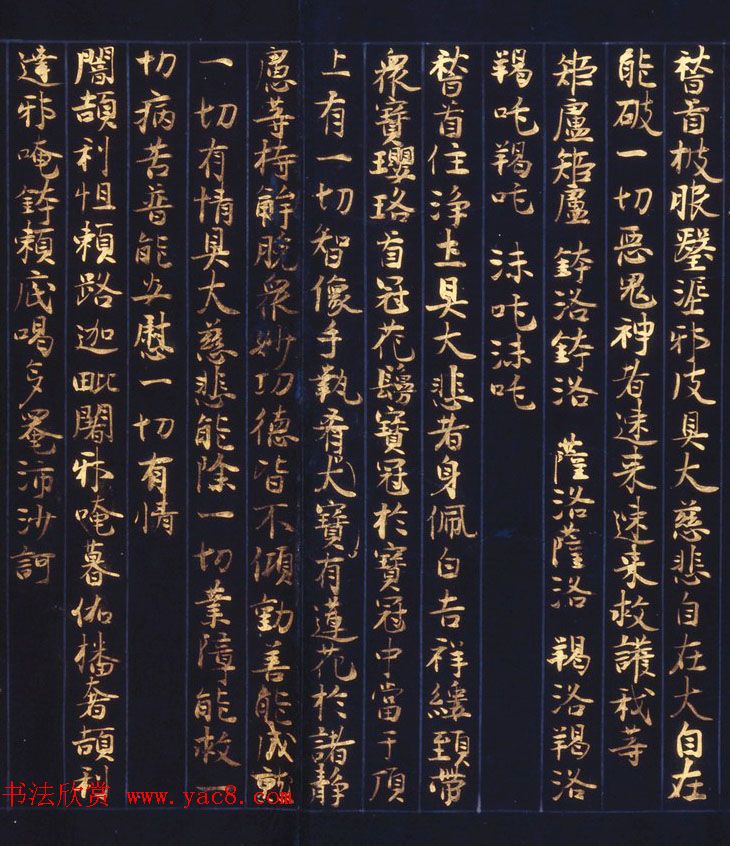 稽首枝服瑿涯邪皮具大慈悲自在大自在
能破一切惡鬼神者速来速来救護我等
矩盧矩盧 鉢洛鉢洛 薩洛薩洛 羯洛羯洛
羯吒羯吒 沫吒沫吒
稽首住淨土具大悲者身佩白吉祥縷頸帶
衆寶瓔珞首冠花鬘寶冠於寶冠中當于頂
上有一切智像手執有大寶有蓮花於諸静
慮等持解脫衆妙功德皆不傾動善能成
一切有情具大慈悲能除一切業障能救一
切病苦普能安慰一切有情
闇頡利怛頼路迦毗闍邪唵暮伽播奢頡利
達邪唵鉢頼底喝多菴沛沙訶
书法欣赏 www.yac8.com